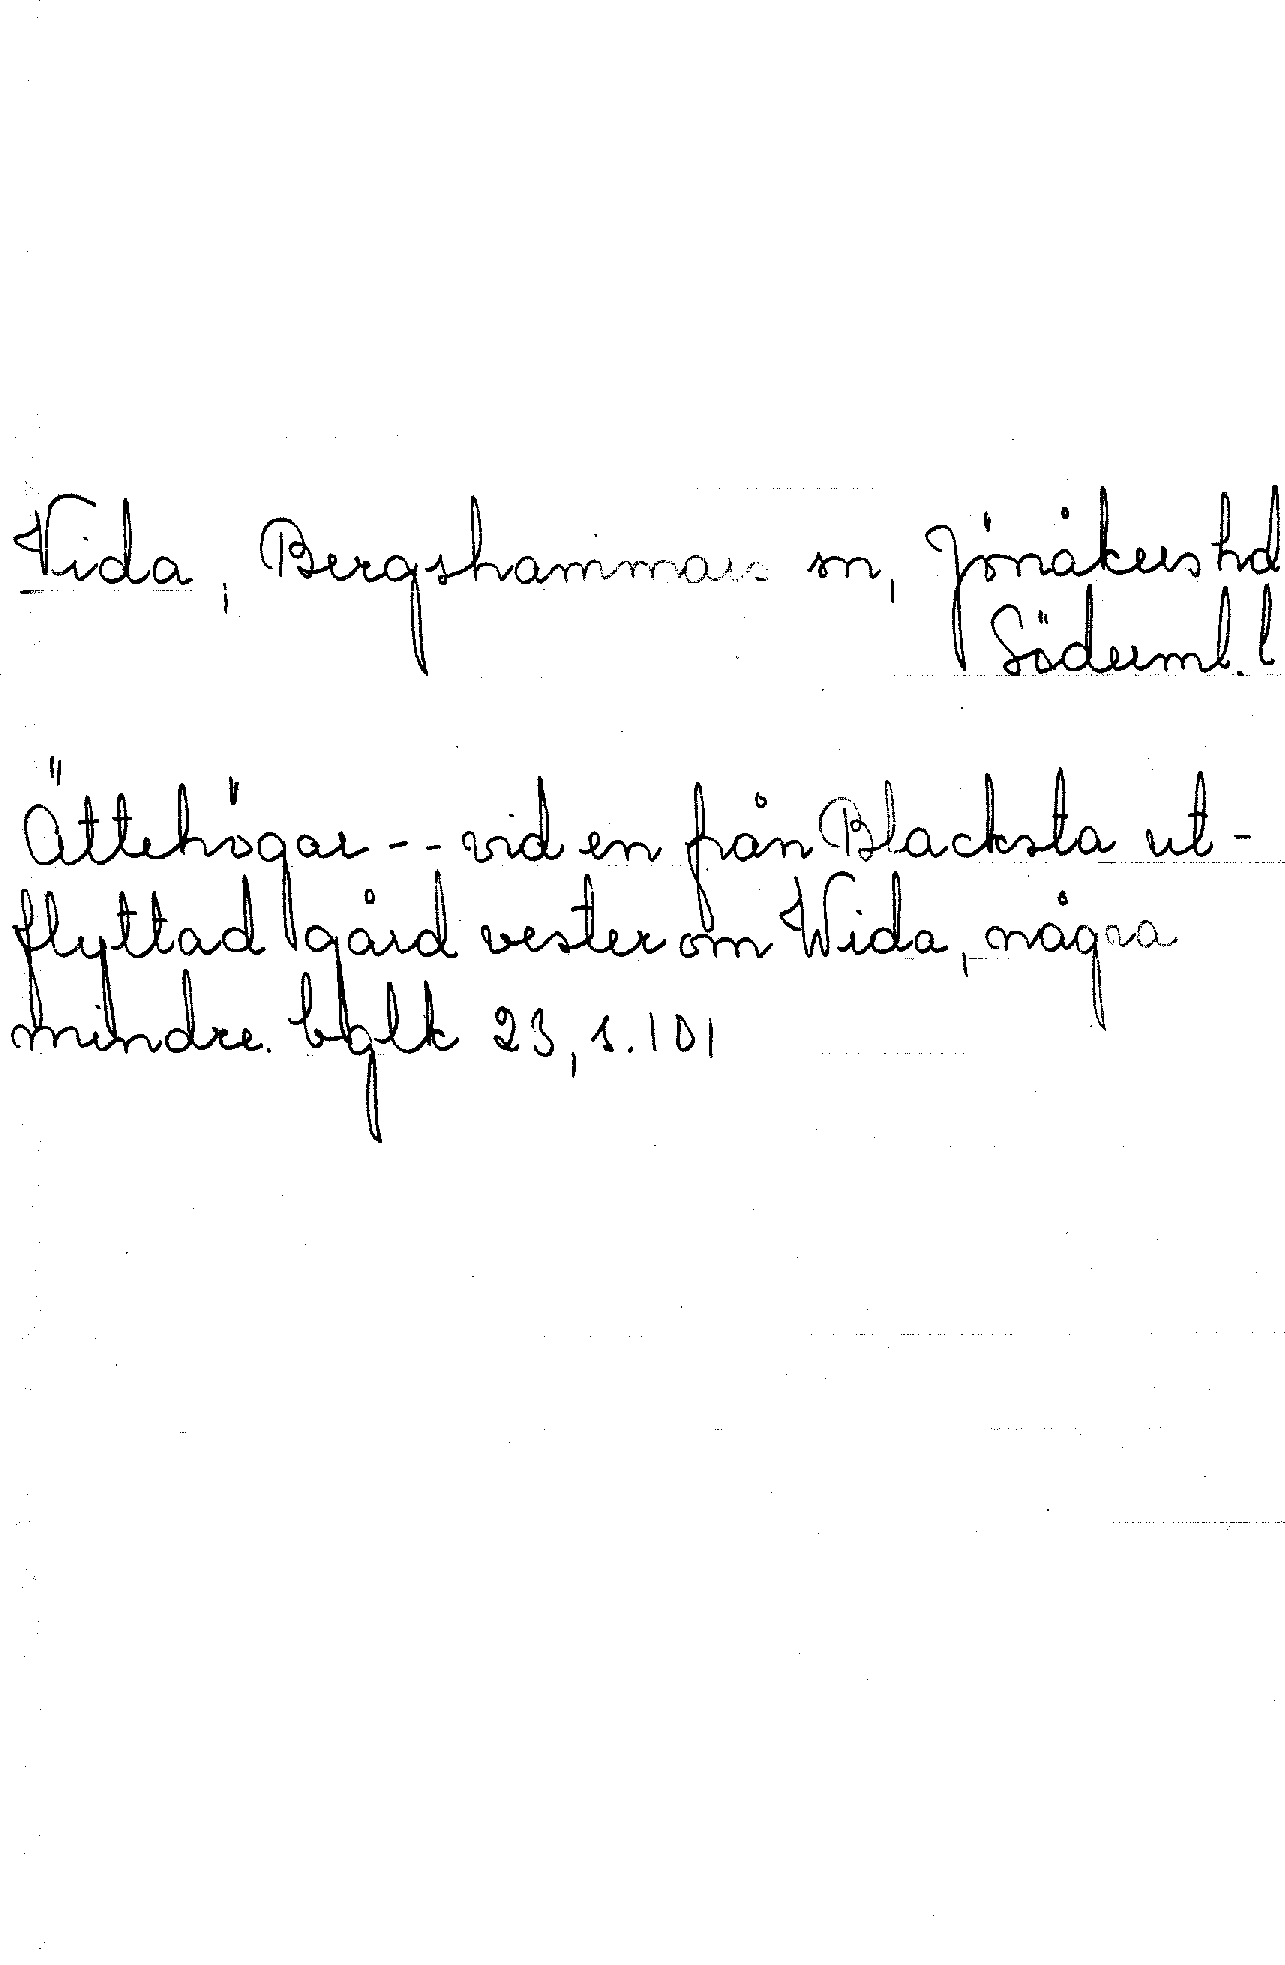 Vida, Bergshammars sn, Jönåkers hd
Söderml. l
Ättehögar -- vid en från Blacksta ut-
flyttad gård vester om Wida, några
mindre. bglk 23, s. 101